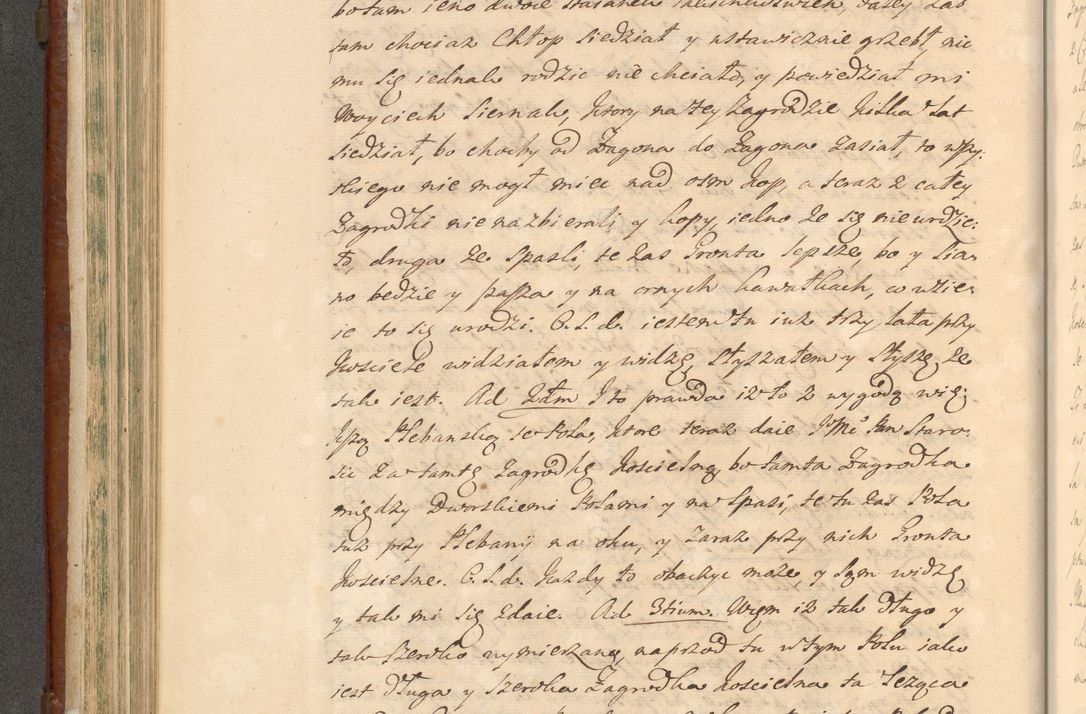 botam ieno dwoie stajanek
tam chociaz Chłop siedział y ustawicznie grzebł, nic
mu się iednak rodzic nie chciało, y powiedział mi
Woyciech Siernak, ktory na tey Zagrodzie kilka lat
siedział, bo choćby od Zagona do Zagona zasiał, to wszy:
stkiego nie mogł mieć nad osm kop, a teraz z całey
Zagrodki nie nazbierali y kopy, iedno że się nie urdzie:
ło, druga że spasli, te zas Gronta lepsze, bo y Sia:
no bedzie y passa y na ornych kawałkach, co wsie:
ie to się urodzi. C. S. d. iestem tu iuż trzy lata przy
Kosciele widziałem y widzę, słyszałem y słyszę że
tak iest. Ad 2dm I to prawda iż to z wygodą wię:
kszą Plebanską te Pola, ktore teraz daie JMć Pan Staro:
sta za tamtę Zagrodkę Koscielną, bo tamta Zagrodka
między Dworskiemi Polami y na spasi, te tu zas Pola
tuz przy Plebanij na oku, y zaraz przy nich Gronta
Koscielne. C. S. d. Każdy to obaczyc może, y sam widzę
y tak mi się zdaie. Ad 3tium. Wiem iż tak długo y
tak szeroko wymierzano, naprzod tu w tym Polu iako
iest długa y szeroka Zagrodka Koscielna ta leząca